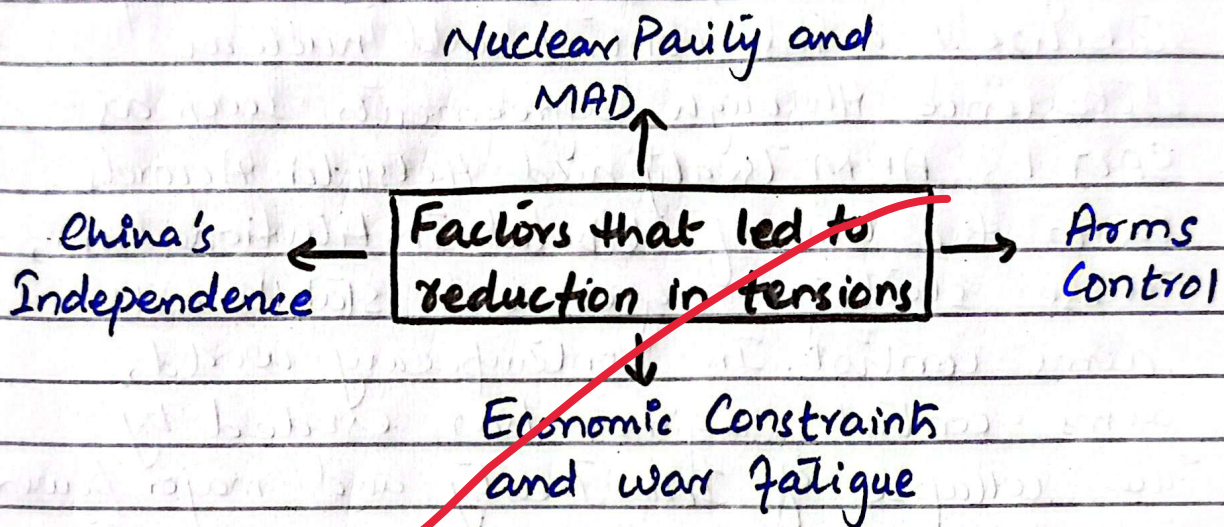 Nuclear Parity and
MAD
China's
Independence
Factors that led to
reduction in tensions
Arms
Control
Economic Constraint
and war fatigue